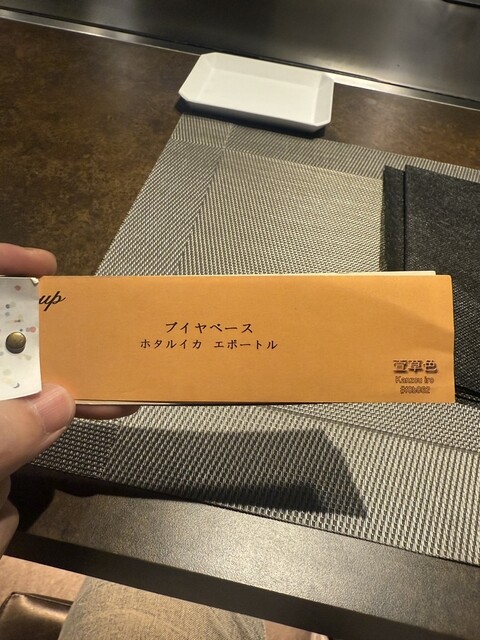 up
ブイヤベース
ホタルイカ エポートル
萱草色
Kanzou iro